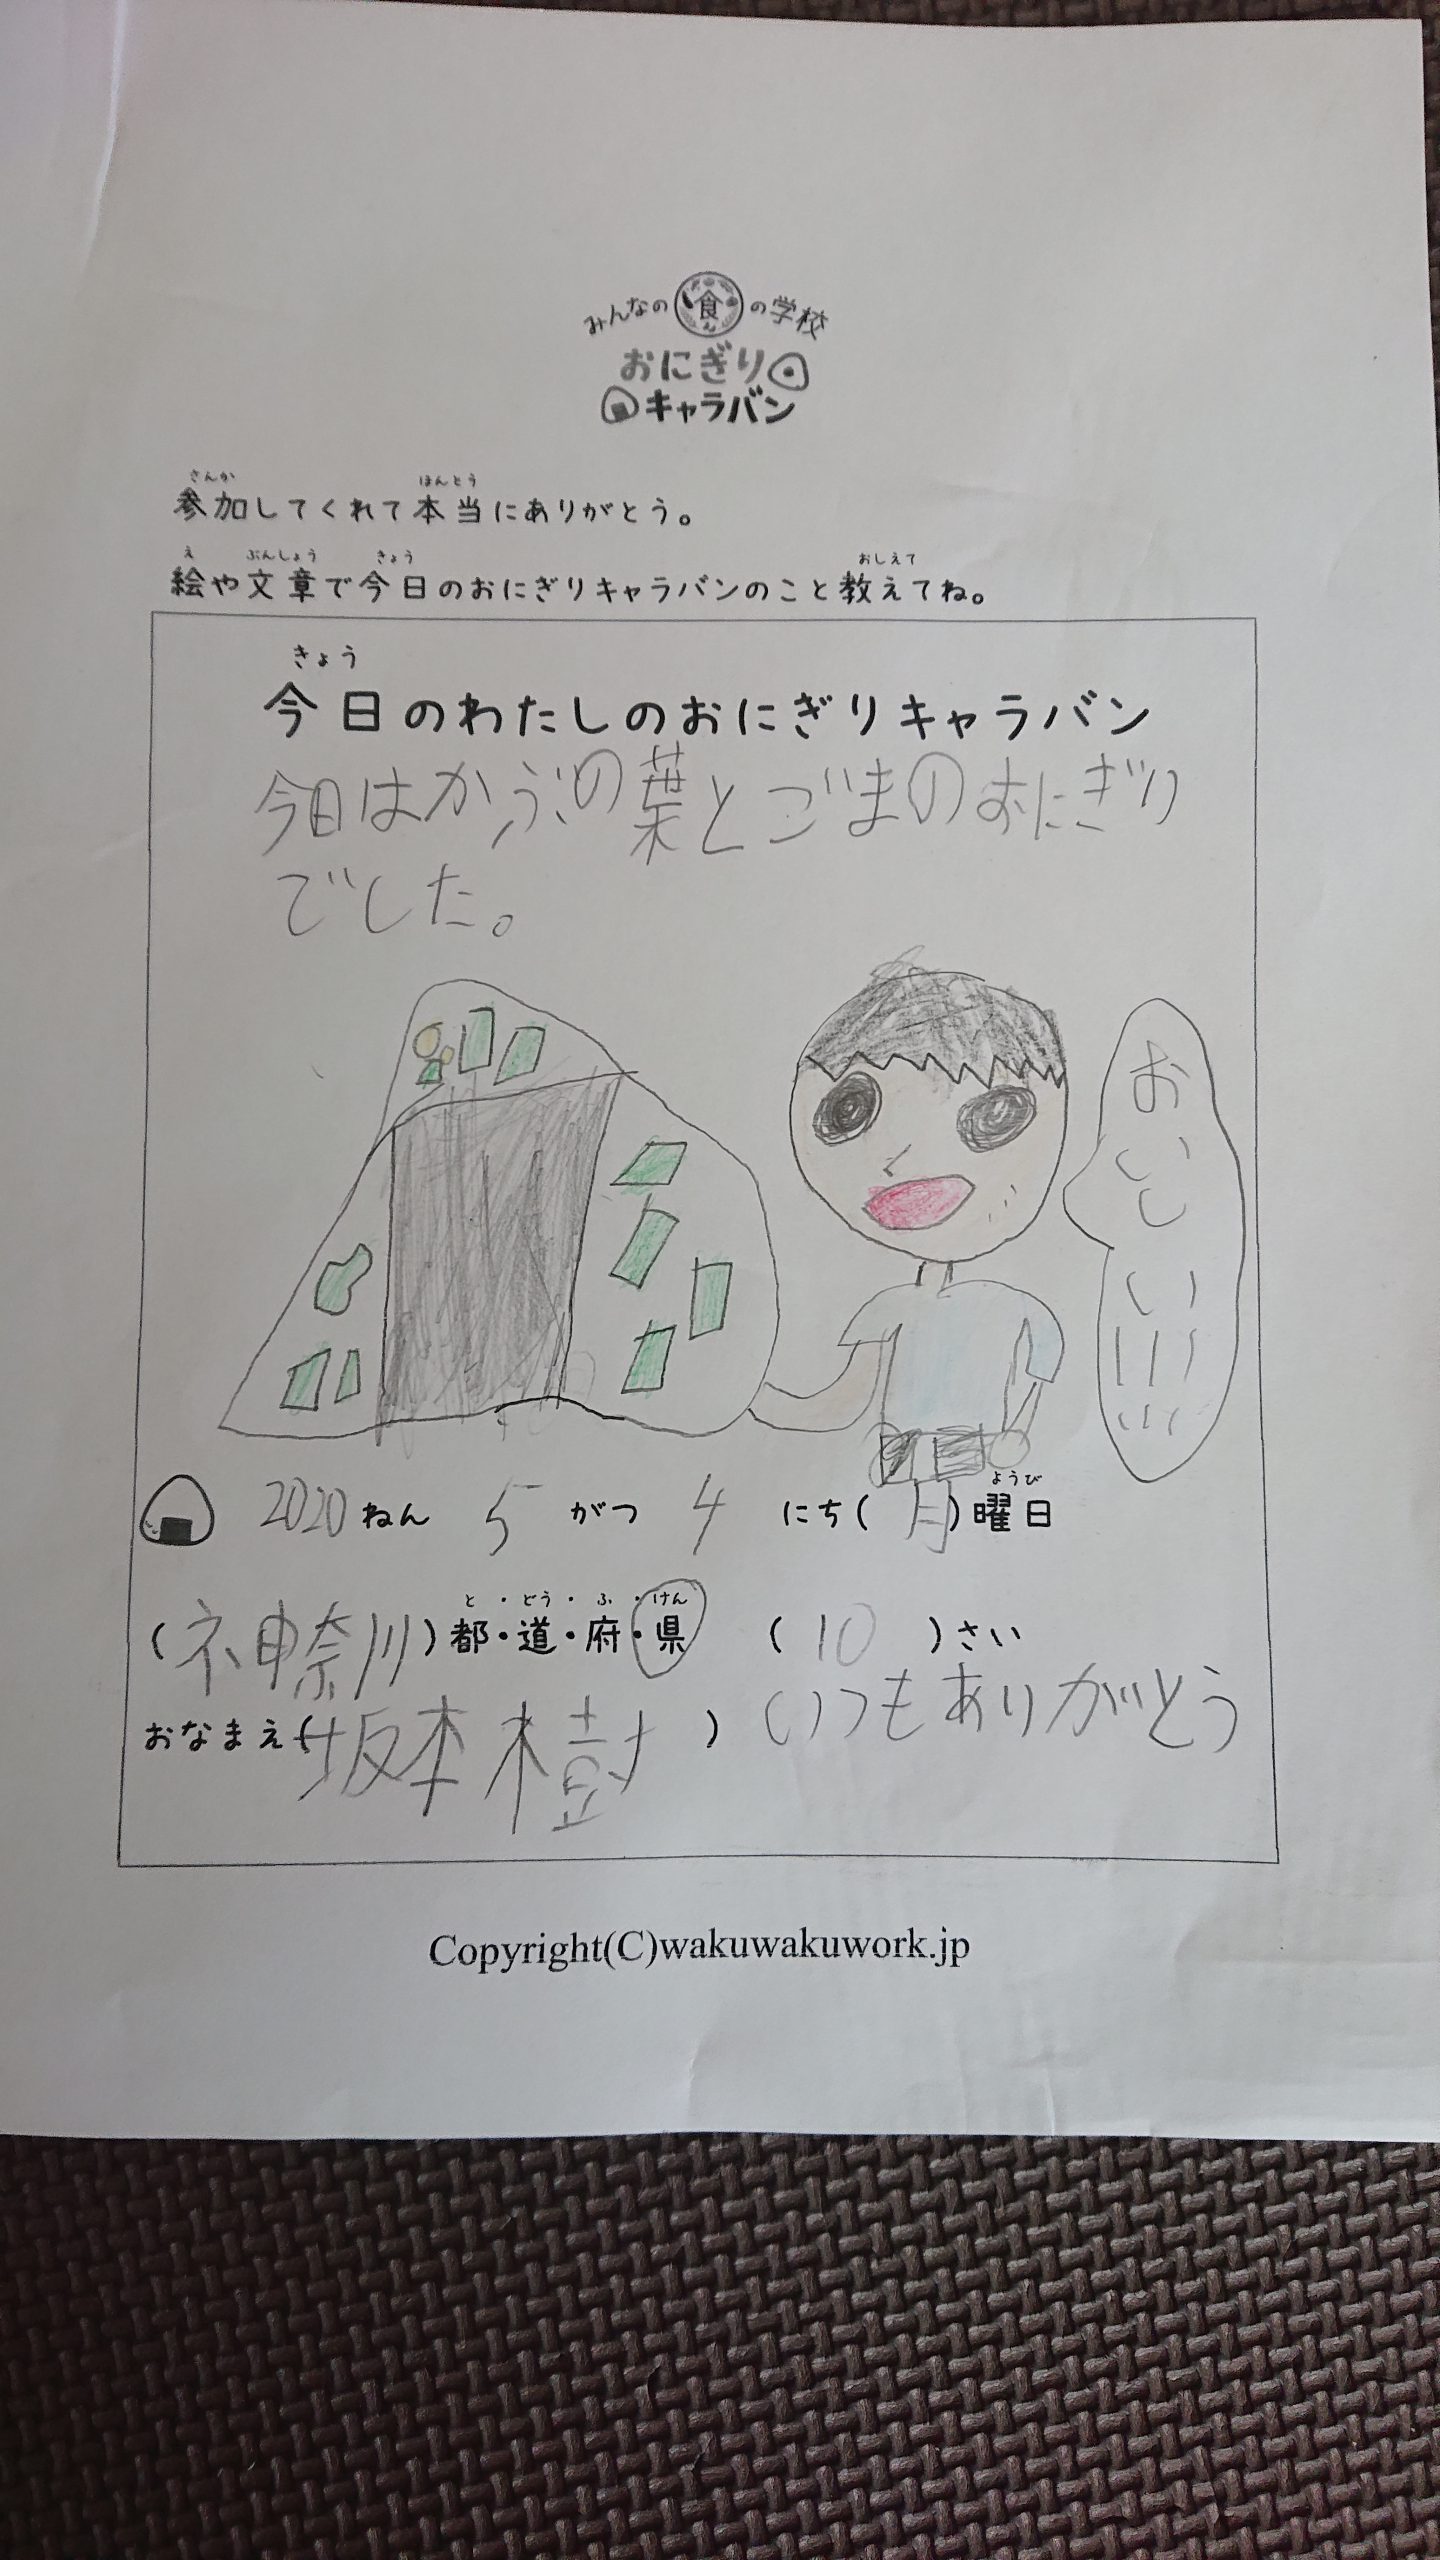 みんなの食の学校
おにぎり
キャラバン
さんか ほんとう
参加してくれて本当にありがとう。
え ぶんしょう きょう おしえて
絵や文章で今日のおにぎりキャラバンのこと教えてね。
きょう
今日のわたしのおにぎりキャラバン
今日はかぶの葉とごまのおにぎり
でした。
おいしい!!!
ようび
2020ねん 5がつ 4にち(月)曜日
と・どう・ふ・けん
(神奈川)都・道・府・県 (10)さい
おなまえ(坂本樹) いつもありがとう
Copyright(C)wakuwakuwork.jp